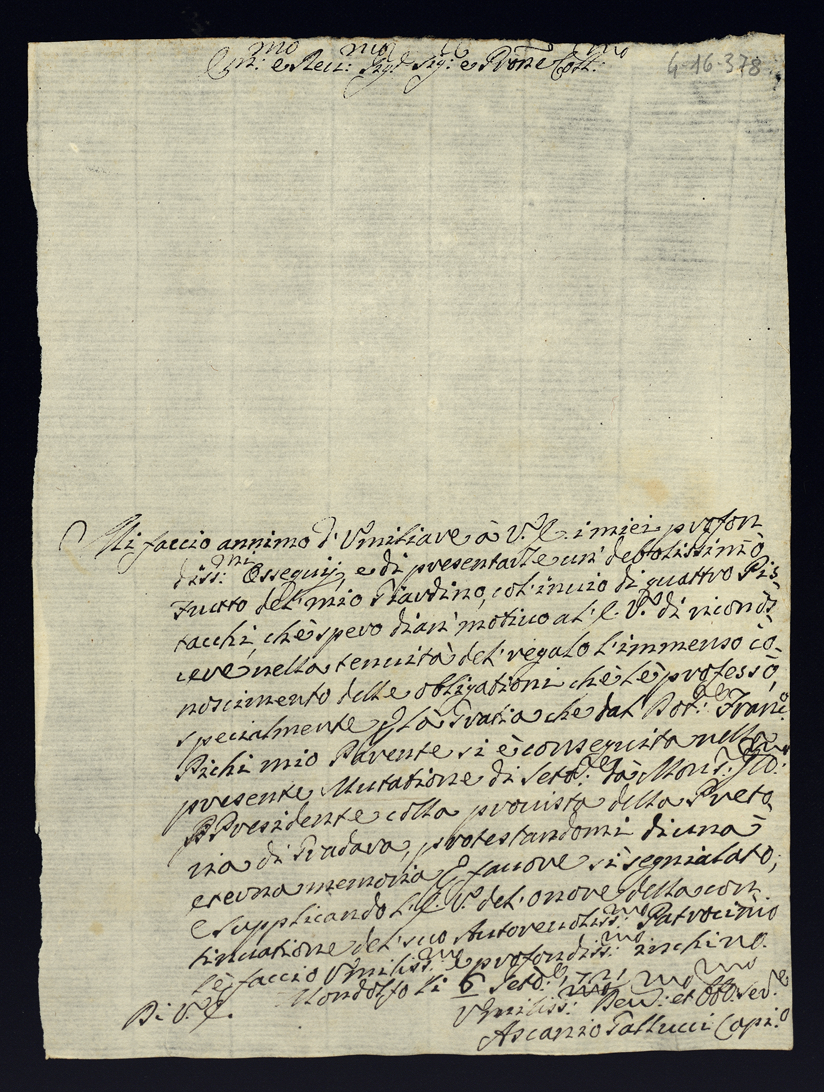 Em:mo e Reu:mo Sig:r Sig:r e Prone Coll:mo
4-16-378
Mi faccio annimo d'Vmiliare à V.ra E. i miei profon
diss:mi Ossequij, e di presentarle un' debolissimo
Frutto del' mio Giardino, col' inuio di quattro Pis,
tacchi, chè spero dian' motiuo al' E. V.ra di ricono,
cere nella tenuità del' regalo l'immenso co,
noscimento delle obligationi chè lè professo,
specialmente p la Gratia che dal Dot:re Franc:o
Pichi mio Parente si è conseguita nella
presente Mutatione di Sett:re dà Mons:r Ill:mo
Presidente colla prouista della Preto,
ria di Gradara, protestandomi di una
eterna memoria p fauore si segnialato,
e supplicando l'E. V. del' onore della con
tinuatione del' suo Autoreuoliss:mo Patrocinio
lè faccio Vmiliss:mo e profondiss:mo inchino.
Mondolfo li 6 Sett:re 1721
Di V. E.
Vmiliss:mo Deu:mo et Obb:mo Ser:re
Ascanio Gallucci Capi:o